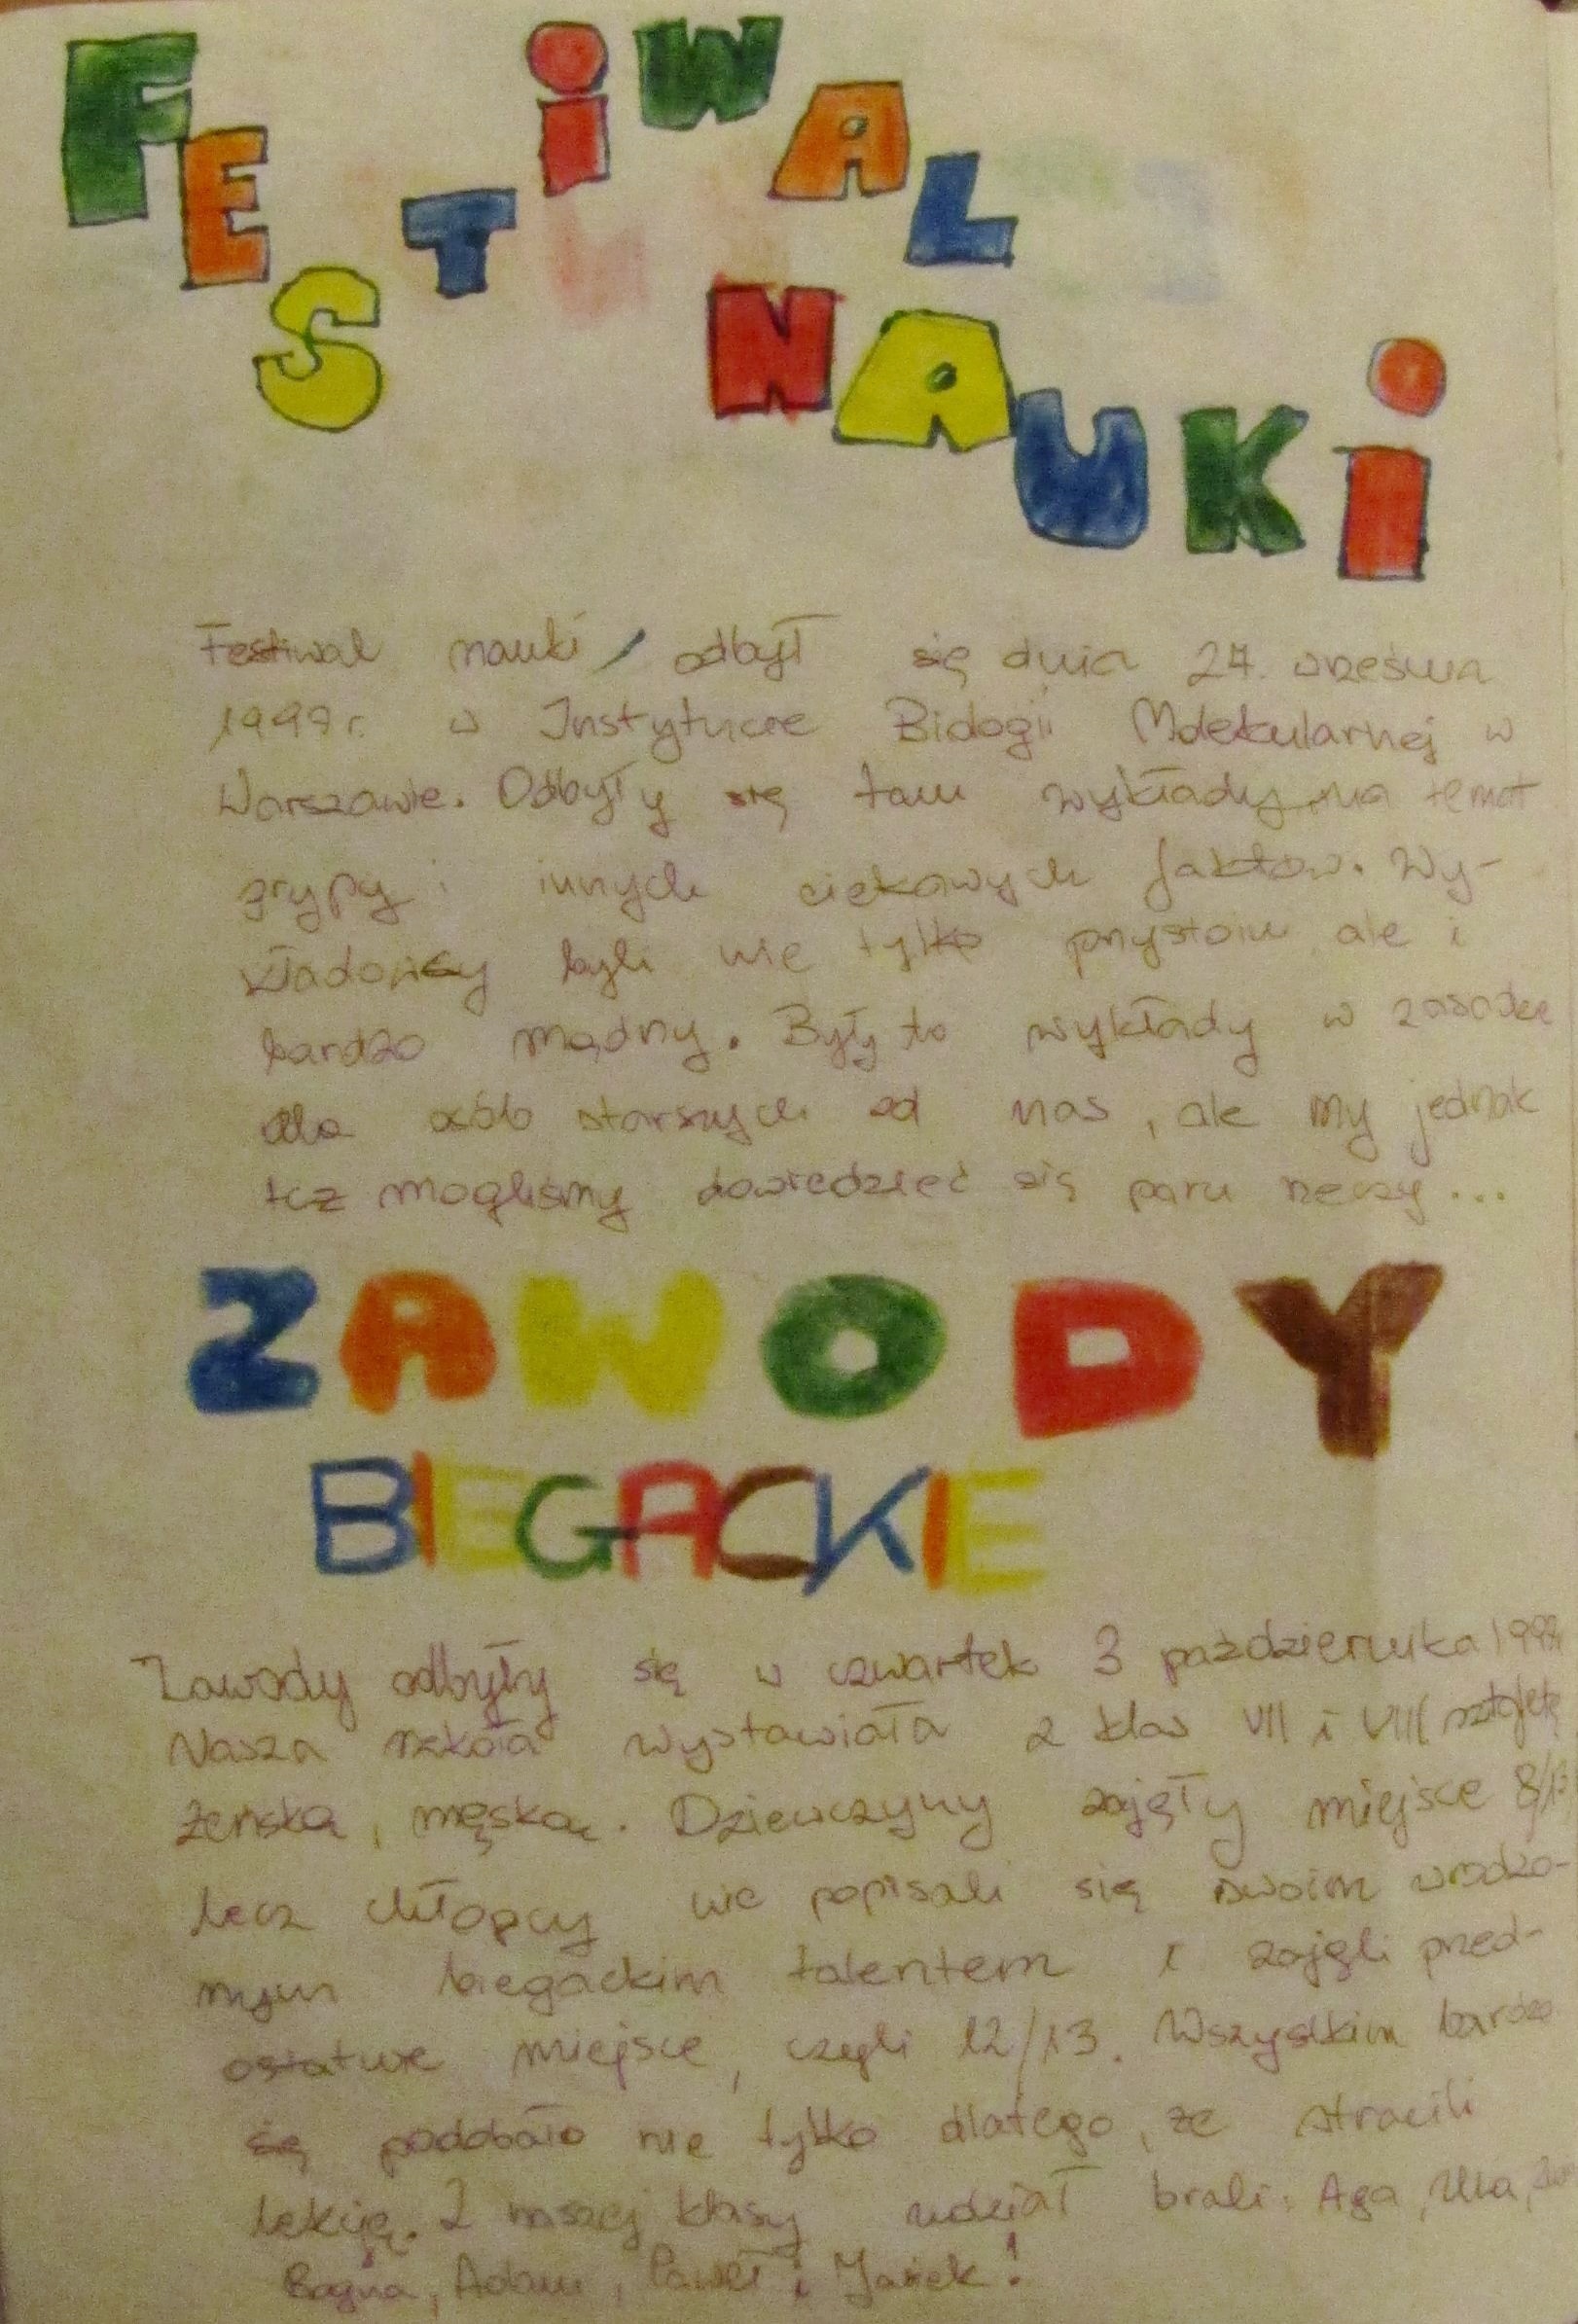 FESTiWAL
NAUKi
Festiwal nauki odbył się dnia 27. września
1997r. w Instytucie Biologii Molekularnej w
Warszawie. Odbyły się tam wykłady na temat
grypy i innych ciekawych faktów. Wy-
kładowcy byli nie tylko przystojni ale i
bardzo mądrzy. Były to wykłady w zasadzie
dla osób starszych od nas, ale my jednak
też mogliśmy dowiedzieć się paru rzeczy...
ZAWODY
BIEGACKIE
Zawody odbyły się w czwartek 3 października 1997r.
Nasza szkoła wystawiała z klas VII i VIII sztafetę
żeńską, męską. Dziewczyny zajęły miejsce 8/13
lecz chłopcy nie popisali się swoim wrodzo-
nym biegackim talentem i zajęli przed-
ostatnie miejsce, czyli 12/13. Wszystkim bardzo
się podobało nie tylko dlatego, że stracili
lekcję. Z naszej klasy udział brali: Aga, Ula,
Bogna, Adam, Paweł i Jasiek!